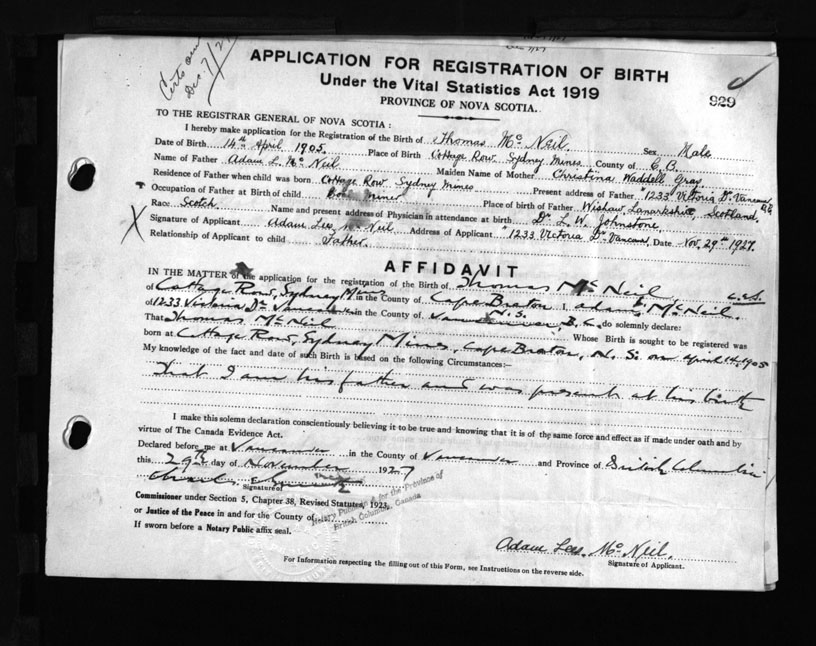 Certs sent
Dec. 7/27
APPLICATION FOR REGISTRATION OF BIRTH
Under the Vital Statistics Act 1919
PROVINCE OF NOVA SCOTIA.
929
TO THE REGISTRAR GENERAL OF NOVA SCOTIA :
I hereby make application for the Registration of the Birth of Thomas Mc Neil. Sex Male
Date of Birth 14th April 1905. Place of Birth Cottage Row Sydney Mines County of C. B.
Name of Father Adam L. Mc Neil Maiden Name of Mother Christina Waddell Gray.
Residence of Father when child was born Cottage Row Sydney Mines Present address of Father "1233 Victoria Dr. Vancouver B.C.
Occupation of Father at Birth of child Coal Miner Place of birth of Father Wishaw, Lanarkshire, Scotland.
Race Scotch Name and present address of Physician in attendance at birth Dr. L. W. Johnstone.
Signature of Applicant Adam Lees Mc Neil Address of Applicant "1233 Victoria Dr Vancouver Date Nov. 29th 1927.
Relationship of Applicant to child Father.
AFFIDAVIT
IN THE MATTER of the application for the registration of the Birth of Thomas Mc Neil
of Cottage Row, Sydney Mines in the County of Cape Breton I, Adam L McNeil.
of 1233 Victoria Dr Vancouver in the County of N. S. Vancouver B. C. do solemnly declare:
That Thomas McNeil Whose Birth is sought to be registered was
born at Cottage Row, Sydney Mines, Cape Breton, N. S. on April 14, 1905
My knowledge of the fact and date of such Birth is based on the following Circumstances:—
That I am his father and was present at his birth
I make this solemn declaration conscientiously believing it to be true and knowing that it is of the same force and effect as if made under oath and by
virtue of The Canada Evidence Act.
Declared before me at Vancouver in the County of Vancouver and Province of British Columbia
this 29th day of November 1927
Signature of
Commissioner under Section 5, Chapter 38, Revised Statutes, 1923,
or Justice of the Peace in and for the County of
Notary Public in & for the Province of
British Columbia, Canada
If sworn before a Notary Public affix seal.
Adam Lees Mc Neil.
Signature of Applicant.
For Information respecting the filling out of this Form, see Instructions on the reverse side.